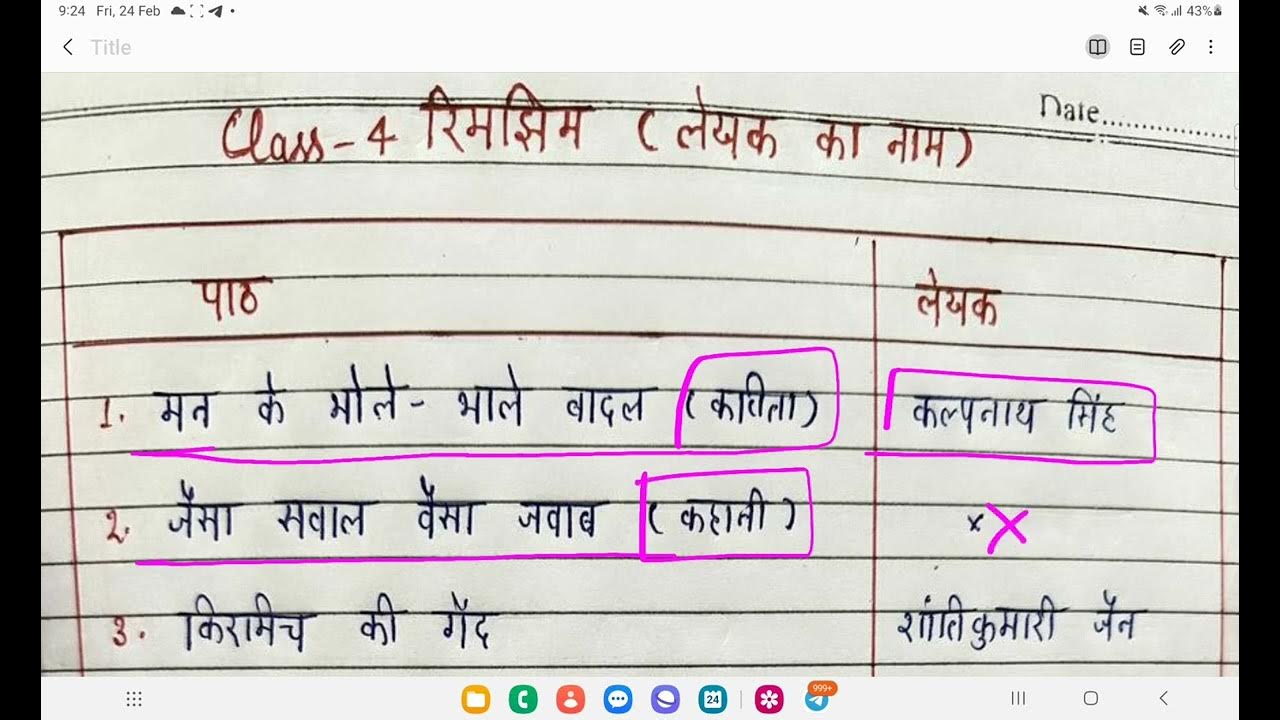 9:24 Fri, 24 Feb 43%
Title
Date
Class-4 रिमझिम (लेखक का नाम)
पाठ लेखक
1. मन के भोले-भाले बादल (कविता) कल्पनाथ सिंह
2. जैसा सवाल वैसा जवाब (कहानी) ×
3. किरामिच की गेंद शांतिकुमारी जैन
24
999+